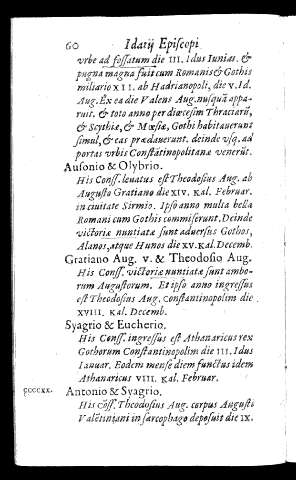 60 Idatij Episcopi
vrbe ad fossatum die III. Idus Iunias. &
pugna magna fuit cum Romanis & Gothis
miliario XII. ab Hadrianopoli, die v. Id.
Aug. Ex ea die Valens Aug. nusquã appa-
ruit. & toto anno per diœcesim Thraciarũ,
& Scythiæ, & Mœsiæ, Gothi habitauerunt
simul, & eas prædauerunt. deinde vsq; ad
portas vrbis Constãtinopolitanæ venerũt.
Ausonio & Olybrio.
His Conss. leuatus est Theodosius Aug. ab
Augusto Gratiano die XIV. Kal. Februar.
in ciuitate Sirmio. Ipso anno multa bella
Romani cum Gothis commiserunt. Deinde
victoriæ nuntiatæ sunt aduersus Gothos,
Alanos, atque Hunos die XV. Kal. Decemb.
Gratiano Aug. v. & Theodosio Aug.
His Conss. victoriæ nuntiatæ sunt ambo-
rum Augustorum. Et ipso anno ingressus
est Theodosius Aug. Constantinopolim die
XVIII. Kal. Decemb.
Syagrio & Eucherio.
His Conss. ingressus est Athanaricus rex
Gothorum Constantinopolim die III. Idus
Ianuar. Eodem mense diem functus idem
Athanaricus VIII. Kal. Februar.
CCCCXX. Antonio & Syagrio.
His cõss. Theodosius Aug. corpus Augusti
Valẽtiniani in sarcophago deposuit die IX.